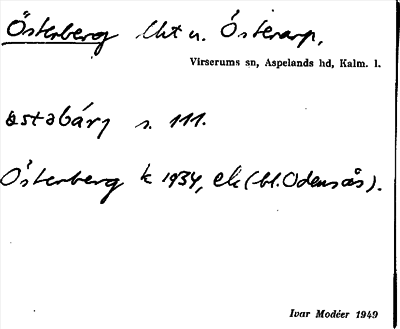 Österberg lht u. Österarp.
Virserums sn, Aspelands hd, Kalm. l.
östabärj s. 111.
Österberg k 1934, ek (bl. Odensås).
Ivar Modéer 1949